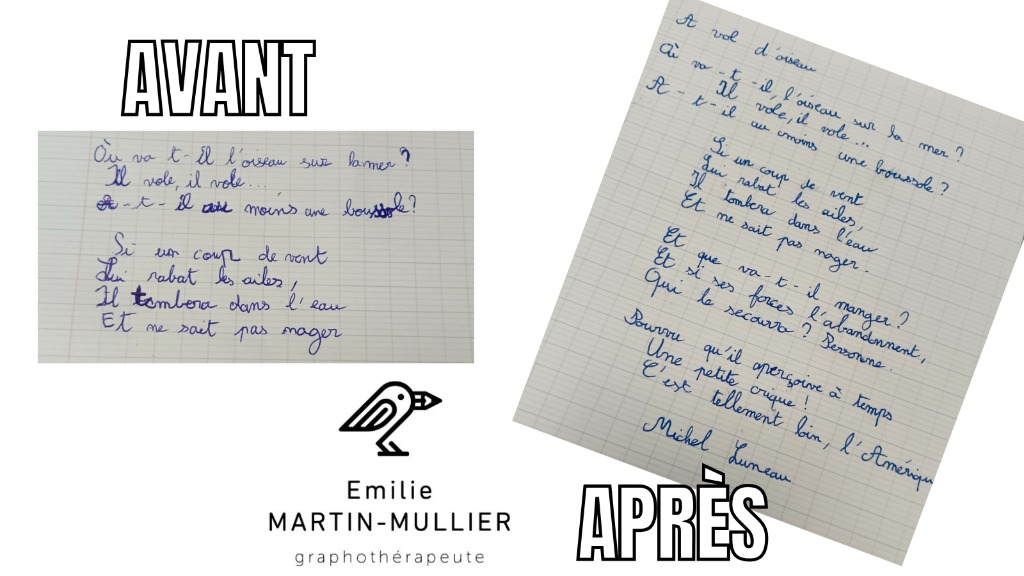 AVANT
Où va t-il l'oiseau sur la mer?
Il vole, il vole...
A-t-il au moins une boussole?
Si un coup de vent
Lui rabat les ailes,
Il tombera dans l'eau
Et ne sait pas nager
Emilie
MARTIN-MULLIER
graphothérapeute
A vol d'oiseau
Où va-t-il, l'oiseau sur la mer?
Il vole, il vole...
A-t-il au moins une boussole?
Si un coup de vent
Lui rabat les ailes,
Il tombera dans l'eau
Et ne sait pas nager.
Et que va-t-il manger?
Et si ses forces l'abandonnent,
Qui le secourra? Personne.
Pourvu qu'il aperçoive à temps
Une petite crique!
C'est tellement loin, l'Amériqu
Michel Luneau
APRÈS